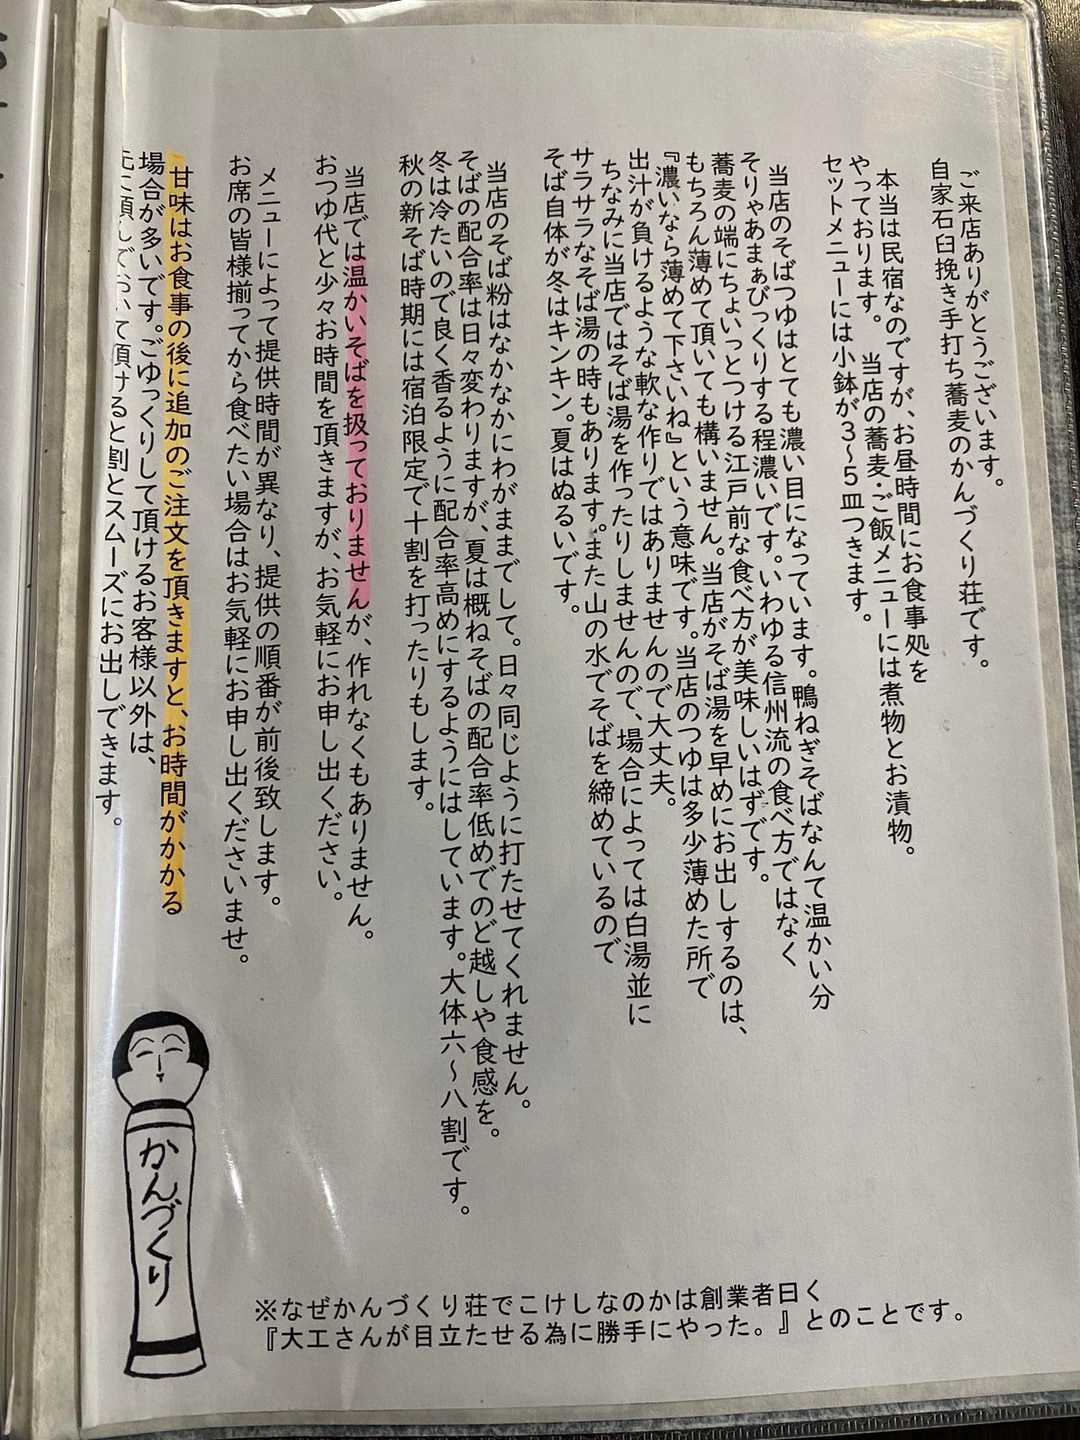 ご来店ありがとうございます。
自家石臼挽き手打ち蕎麦のかんづくり荘です。
本当は民宿なのですが、お昼時間にお食事処を
やっております。　当店の蕎麦・ご飯メニューには煮物とお漬物。
セットメニューには小鉢が3～5皿つきます。
当店のそばつゆはとても濃い目になっています。鴨ねぎそばなんて温かい分
そりゃあまぁびっくりする程濃いです。いわゆる信州流の食べ方ではなく
蕎麦の端にちょいっとつける江戸前な食べ方が美味しいはずです。
もちろん薄めて頂いても構いません。当店がそば湯を早めにお出しするのは、
『濃いなら薄めて下さいね』という意味です。当店のつゆは多少薄めた所で
出汁が負けるような軟な作りではありませんので大丈夫。
ちなみに当店ではそば湯を作ったりしませんので、場合によっては白湯並に
サラサラなそば湯の時もあります。また山の水でそばを締めているので
そば自体が冬はキンキン。夏はぬるいです。
当店のそば粉はなかなかにわがままでして。日々同じように打たせてくれません。
そばの配合率は日々変わりますが、夏は概ねそばの配合率低めでのど越しや食感を。
冬は冷たいので良く香るように配合率高めにするようにはしています。大体六～八割です。
秋の新そば時期には宿泊限定で十割を打ったりもします。
当店では温かいそばを扱っておりませんが、作れなくもありません。
おつゆ代と少々お時間を頂きますが、お気軽にお申し出ください。
メニューによって提供時間が異なり、提供の順番が前後致します。
お席の皆様揃ってから食べたい場合はお気軽にお申し出くださいませ。
甘味はお食事の後に追加のご注文を頂きますと、お時間がかかる
場合が多いです。ごゆっくりして頂けるお客様以外は、
先に頼んでおいて頂けると割とスムーズにお出しできます。
かんづくり
※なぜかんづくり荘でこけしなのかは創業者曰く
『大工さんが目立たせる為に勝手にやった。』とのことです。